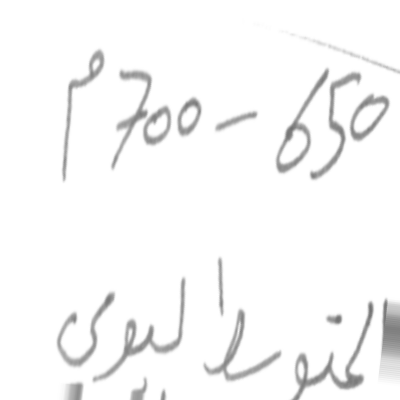 650 - 700 م
المتوسط اليومى